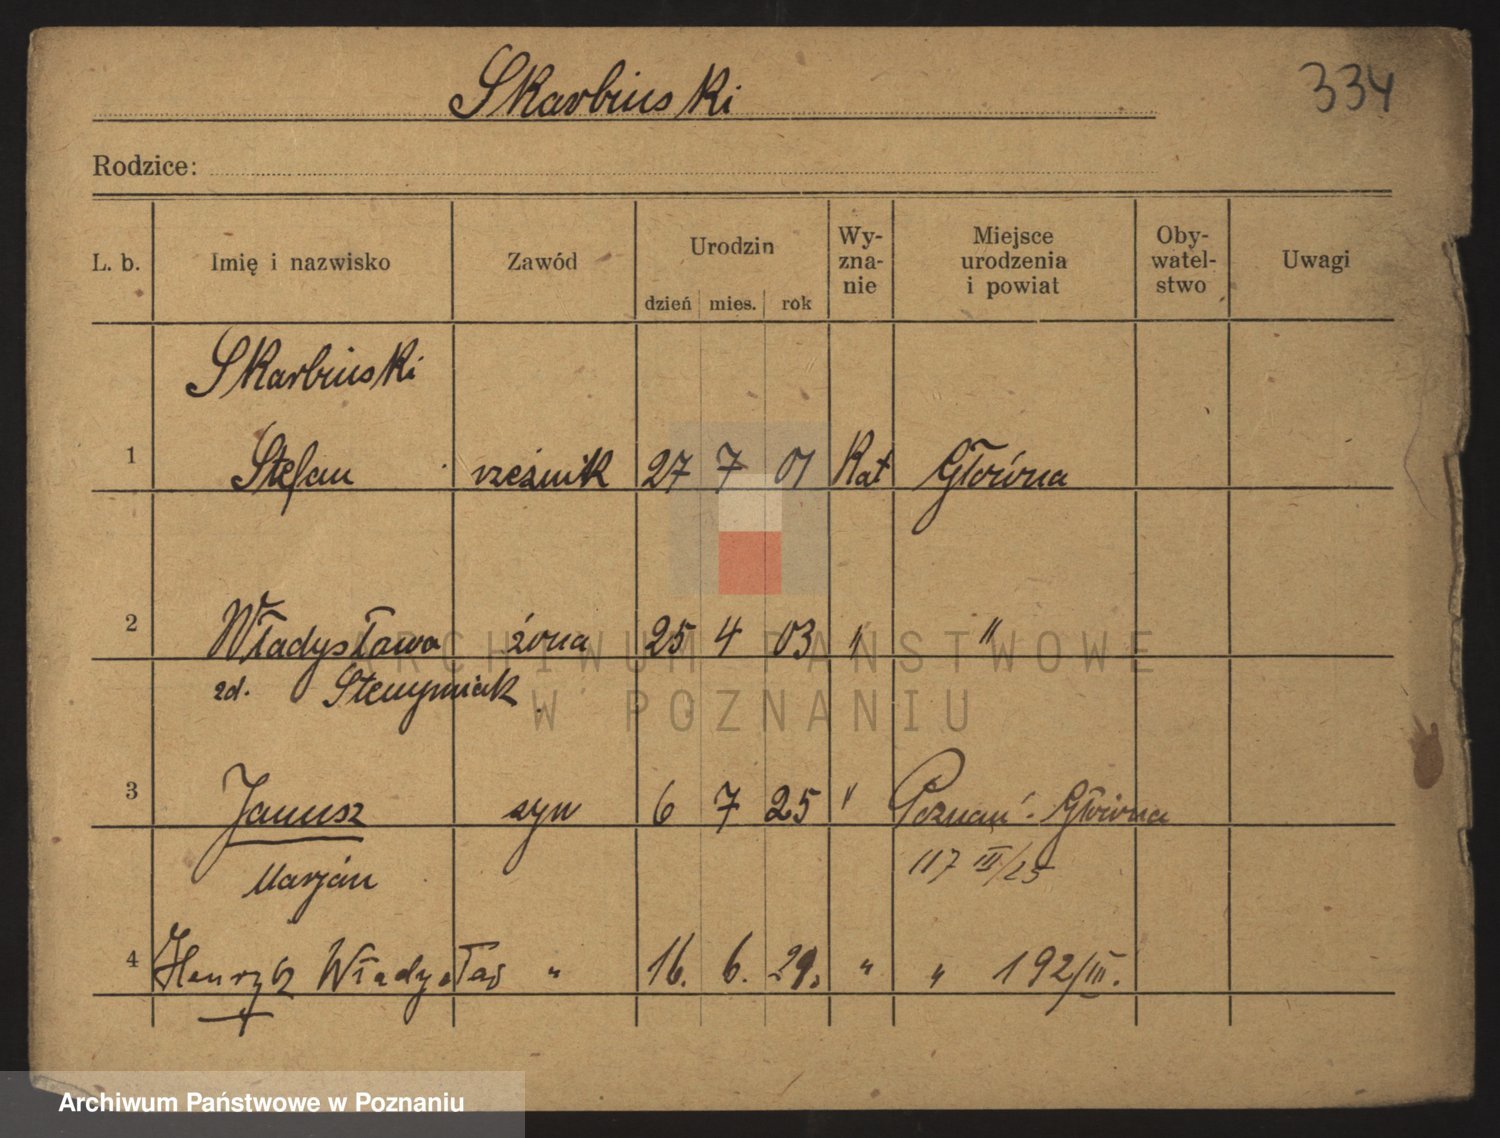 Skarbinski
334
Rodzice:
L. b. Imię i nazwisko Zawód Urodzin Wy-zna-nie Miejsce urodzenia i powiat Oby-watel-stwo Uwagi
dzień mies. rok
Skarbinski
1 Stefan rzeźnik 27 7 01 Kat Główna
2 Władysława żona 25 4 03 " "
zd.
3 Janusz syn 6 7 25 " Poznań - Główna
Marjan 117 III/25
4 Henryk Władysław " 16. 6. 29. " " 192/III.
ARCHIWUM PAŃSTWOWE
W POZNANIU
Archiwum Państwowe w Poznaniu